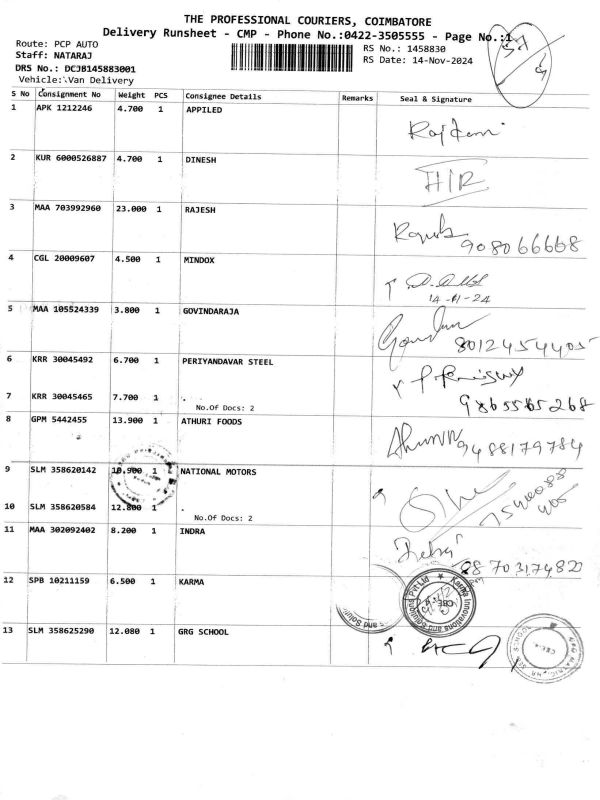 THE PROFESSIONAL COURIERS, COIMBATORE
Delivery Runsheet - CMP - Phone No.:0422-3505555 - Page No.:1
Route: PCP AUTO
Staff: NATARAJ
DRS No.: DCJB145883001
Vehicle: Van Delivery
RS No.: 1458830
RS Date: 14-Nov-2024
S No Consignment No Weight PCS Consignee Details Remarks Seal & Signature
1 APK 1212246 4.700 1 APPILED
2 KUR 6000526887 4.700 1 DINESH
3 MAA 703992960 23.000 1 RAJESH
908066668
4 CGL 20009607 4.500 1 MINDOX
14-11-24
5 MAA 105524339 3.800 1 GOVINDARAJA
8012454405
6 KRR 30045492 6.700 1 PERIYANDAVAR STEEL
7 KRR 30045465 7.700 1 .
No.Of Docs: 2
9865565268
8 GPM 5442455 13.900 1 ATHURI FOODS
9488179784
9 SLM 358620142 10.900 1 NATIONAL MOTORS
10 SLM 358620584 12.800 1 .
No.Of Docs: 2
7540088
405
11 MAA 302092402 8.200 1 INDRA
8870317482
12 SPB 10211159 6.500 1 KARMA
Karma Innovations and Solutions Pvt Ltd
CBE
13 SLM 358625290 12.080 1 GRG SCHOOL